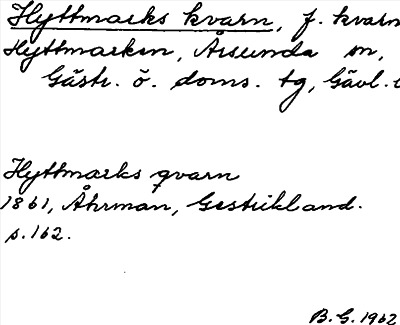 Hyttmarks kvarn, f. kvarn
Hyttmarken, Årsunda sn,
Gästr. ö. doms. tg, Gävl.
Hyttmarks qvarn
1861, Åhrman, Gestrikland.
s. 162.
B. G. 1962